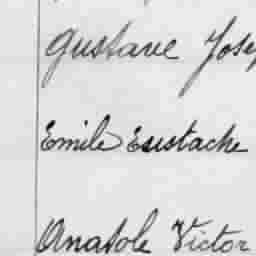 Gustave Josep
Emile Eustache
Anatole Victor